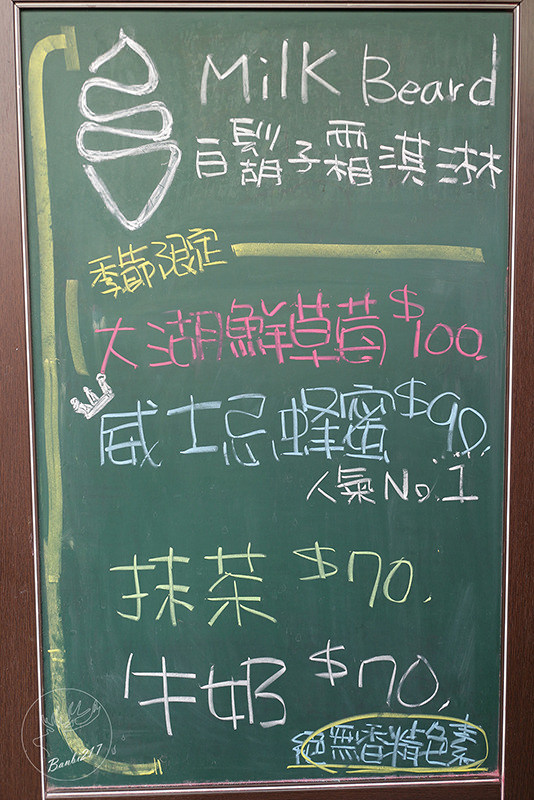 Milk Beard
白鬍子霜淇淋
季節限定
大湖鮮草莓 $100.
威士忌蜂蜜 $90.
人氣No.1
抹茶 $70.
牛奶 $70.
絕無香精色素
Banbi217